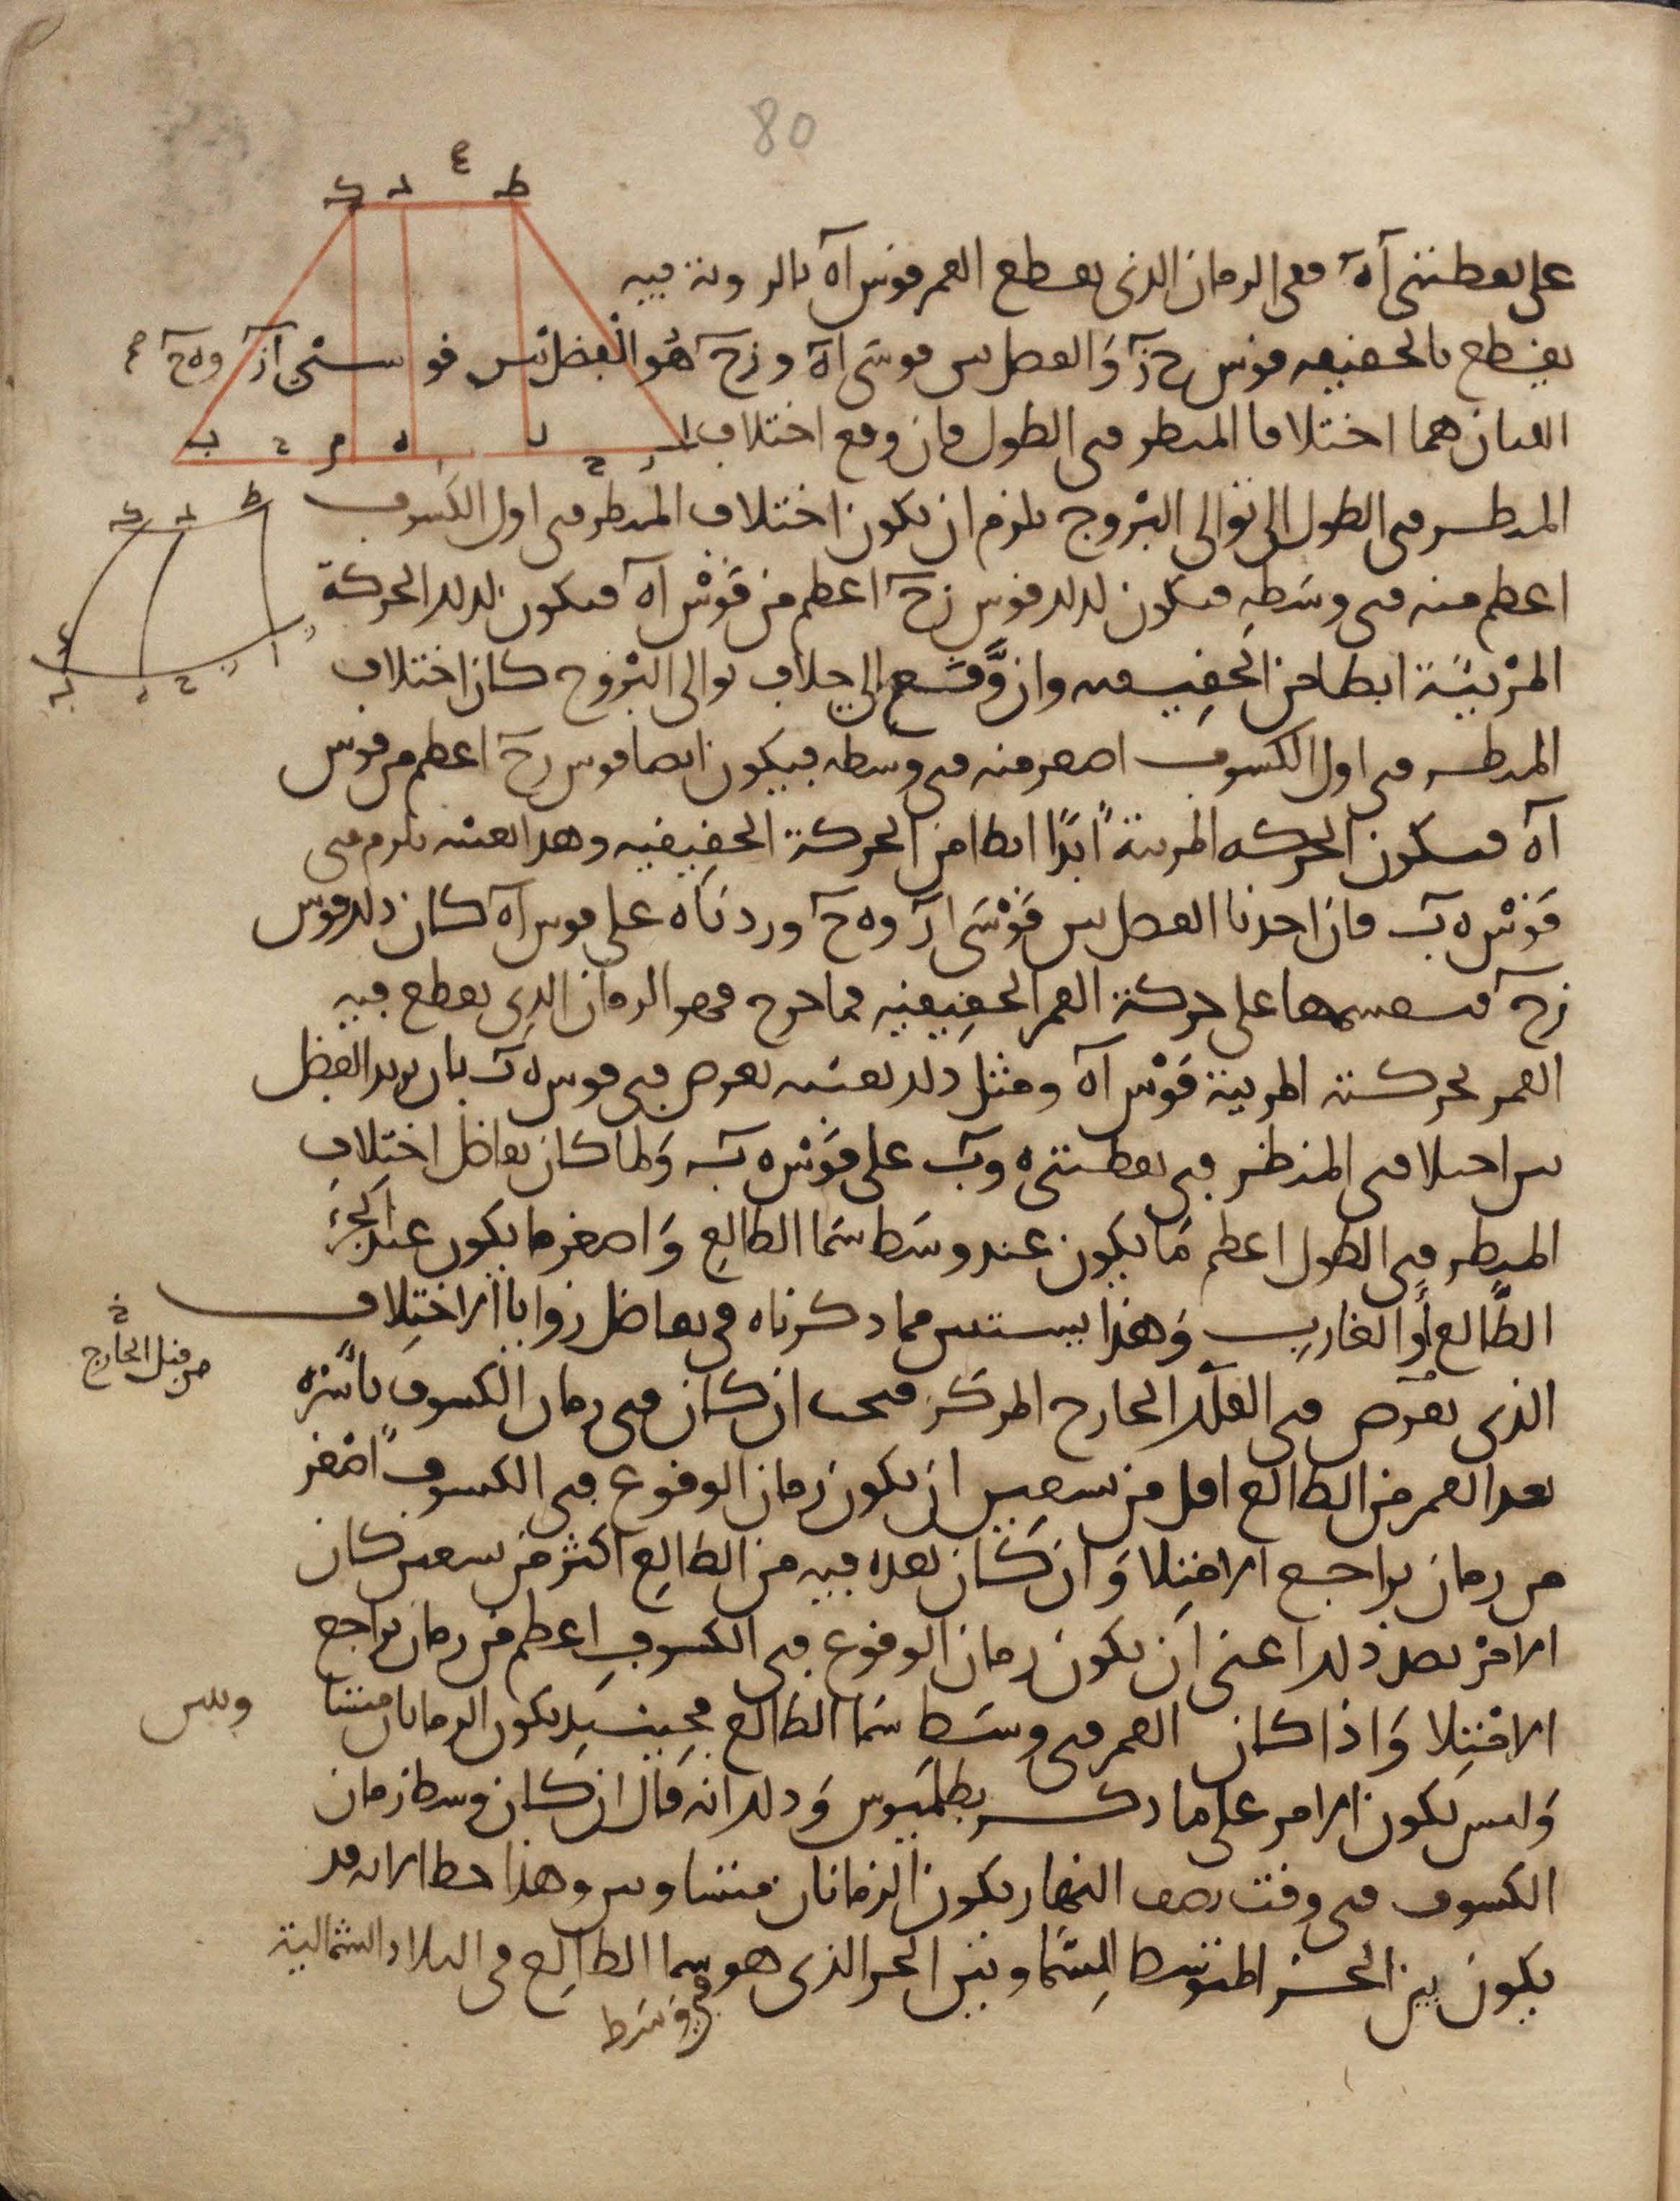 80
ع
ط د ك
على نقطتى آه ففى الزمان الذى يقطع القمر قوس آه بالرؤية فيه
يقطع بالحقيقه قوس ح ز والفضل بين قوسى آه و زح هو الفضل بين قوسى از و ه ح
اللتان هما اختلافا المنظر فى الطول فان وقع اختلاف
المنظر فى الطول الى توالى البروج يلزم ان يكون اختلاف المنظر فى اول الكسوف
اعظم منه فى وسطه فيكون لذلك قوس زح اعظم من قوس آه فيكون لذلك الحركة
المرئية ابطا من الحقيقيه وان وقع الى خلاف توالى البروج كان اختلاف
المنظر فى اول الكسوف اصغر منه فى وسطه فيكون ايضا قوس زح اعظم من قوس
آه فيكون الحركه المرئية ابدًا ابطا من الحركة الحقيقيه وهذا بعينه يلزم فى
قوس ه ب فان اخذنا الفضل بين قوسى از و ه ح وزدناه على قوس آه كان ذلك قوس
زح فنقسمها على حركة القمر الحقيقيه فما خرج فهو الزمان الذى يقطع فيه
القمر بحركته المرئية قوس آه ومثل ذلك بعينه يعرض فى قوس ه ب بان نزيد الفضل
بين اختلافى المنظر فى نقطتى ه و ب على قوس ه ب ولما كان تفاضل اختلاف
المنظر فى الطول اعظم ما يكون عند وسط سما الطالع واصغر ما يكون عند الجزء
الطالع أو الغارب وهذا يستبين مما ذكرناه فى تفاضل زوايا الاختلاف
من قبل الخارج
الذى يعرض فى الفلك الخارج المركز فيجب ان كان فى زمان الكسوف باسره
بعد القمر من الطالع اقل من تسعين ان يكون زمان الوقوع فى الكسوف اصغر
من زمان تراجع الامتلا وان كان بعده فيه من الطالع اكثر من تسعين كان
الامر بضد ذلك اعنى ان يكون زمان الوقوع فى الكسوف اعظم من زمان تراجع
الامتلا واذا كان القمر فى وسط سما الطالع فحينئذ يكون الزمانان متسا
ويين
وليس يكون الامر على ما ذكر بطلميوس وذلك انه قال ان كان وسط زمان
الكسوف فى وقت نصف النهار يكون الزمانان متساويين وهذا خطا لانه قد
يكون بين الجزء المتوسط السما وبين الجزء الذى هو سما الطالع فى البلاد الشمالية
فى وسط